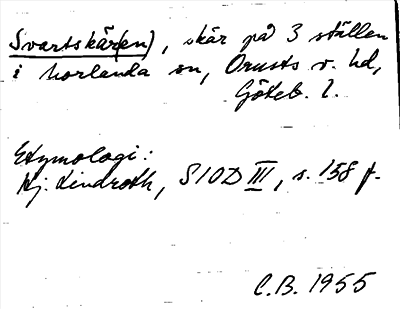 Svartskär(en), skär på 3 ställen
i Morlanda sn, Orusts v. hd,
Göteb. l.
Etymologi:
Hj. Lindroth, SIOD III, s. 158 f.
C.B. 1955